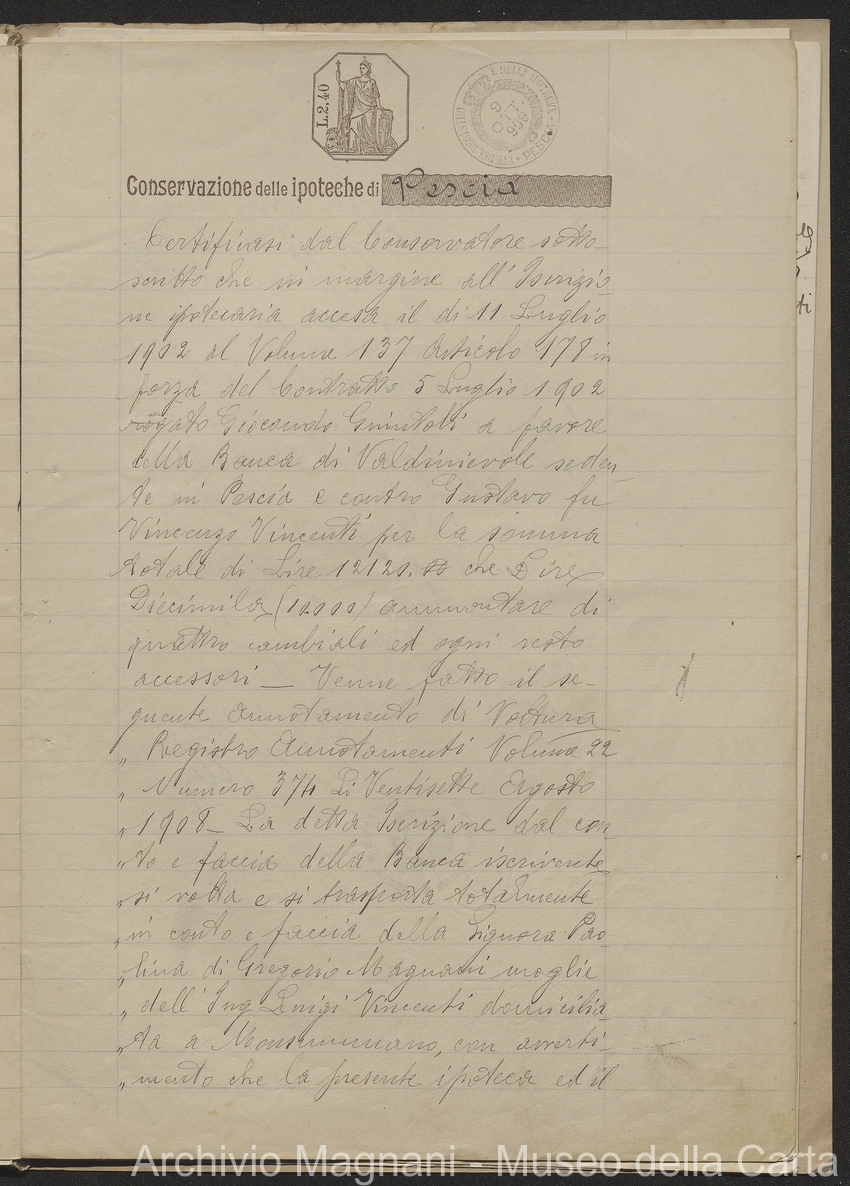 L.2.40
9 OTT. PESCIA
Conservazione delle ipoteche di Pescia
Certificasi dal Conservatore sotto-
scritto che in margine all'Iscrizio
ne ipotecaria accesa il dì 11 Luglio
1902 al Volume 137 Articolo 178 in
forza del Contratto 5 Luglio 1902
rogato Giocondo Giuntoli a favore
della Banca di Valdinievole seden
te in Pescia e contro Gustavo fu
Vincenzo Vincenti per la somma
totale di Lire 12120. che Lire
Diecimila (10000) ammontare di
quattro cambiali ed ogni resto
accessori — Venne fatto il se-
guente annotamento di Voltura
„ Registro Annotamenti Volume 22
„ Numero 374 Li Ventisette Agosto
„ 1908 — La detta Iscrizione dal con
„ to e faccia della Banca iscrivente
„ si volta e si trasporta totalmente
„ in conto e faccia della Signora Pao
„ lina di Gregorio Magnani moglie
„ dell'Ing Luigi Vincenti domicilia
„ ta a Monsummano, con avverti-
„ mento che la presente ipoteca ed il
ti
Archivio Magnani - Museo della Carta